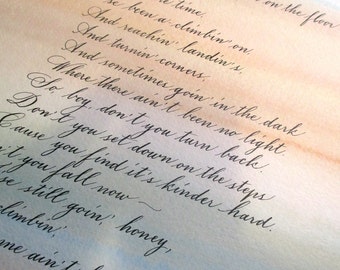 on the floor
time.
se been a-climbin' on
And reachin' landin's,
And turnin' corners,
And sometimes goin' in the dark
Where there ain't been no light.
So, boy, don't you turn back.
Don't you set down on the steps
'Cause you find it's kinder hard.
n't you fall now ~
se still goin', honey,
climbin',
me ain't